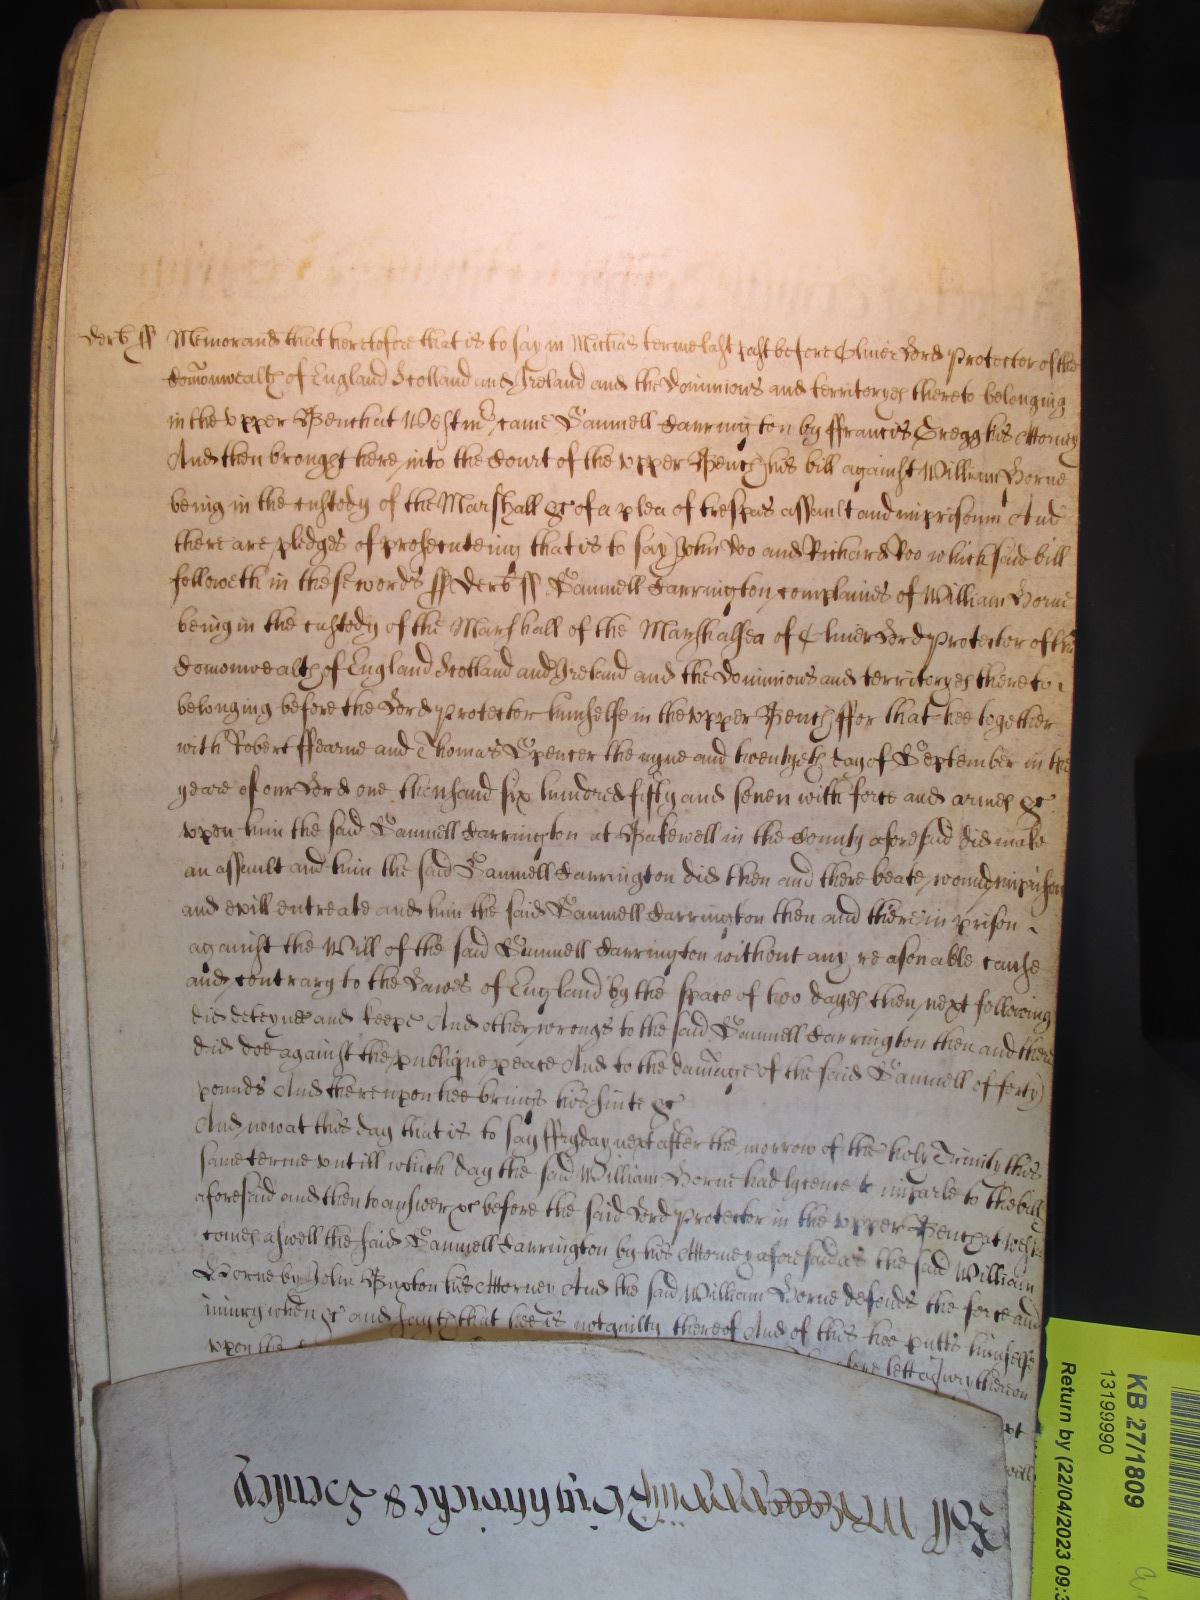 Derb ss Memorand that heretofore that is to say in Michas terme last past before Oliver Lord Protector of the
Comonwealth of England Scotland and Ireland and the Dominions and territoryes thereto belonging
in the Upper Bench at Westmr came Samuell Farrington by ffrancis Gregg his Attorney
And then brought here into the Court of the Upper Bench his bill against William Horne
being in the custody of the Marshall &c of a plea of trespas assault and imprisonm And
there are pledges of prosecuteing that is to say John Doo and Richard Roo which said bill
followeth in these words ss Derb ss Samuell Farrington complaines of William Horne
being in the custody of the Marshall of the Marshalsea of Oliver Lord Protector of the
Comonwealth of England Scotland and Ireland and the Dominions and territoryes thereto
belonging before the Lord Protector himselfe in the Upper Bench ffor that hee together
with Robert ffearne and Thomas Spencer the nyne and twentyeth day of September in the
yeare of our Lord one thousand six hundred fifty and seven with force and armes &c
upon him the said Samuell Farrington at Bakewell in the County aforesaid did make
an assault and him the said Samuell Farrington did then and there beate wound imprison
and evill entreate and him the said Samuell Farrington then and there in prison
against the Will of the said Samuell Farrington without any reasonable cause
and contrary to the Lawes of England by the space of two dayes then next following
did deteyne and keepe And other wrongs to the said Samuell Farrington then and there
did doe against the publique peace And to the damage of the said Samuell of forty
pounds And thereupon hee brings his suite &c
And now at this day that is to say ffryday next after the morrow of the holy Trinity this
same terme untill which day the said William Horne had lycence to imparle to the bill
aforesaid and then to answer &c before the said Lord Protector in the Upper Bench at Westm
comes aswell the said Samuell Farrington by his Attorney aforesaid as the said William
Horne by John Buxton his Attorney And the said William Horne defends the force and
iniury when &c and sayth that hee is not guilty thereof And of this hee putts himselfe
upon the
lett a Jury thereon
Roll
KB 27/1809
13199990
Return by (22/04/2023 09:3